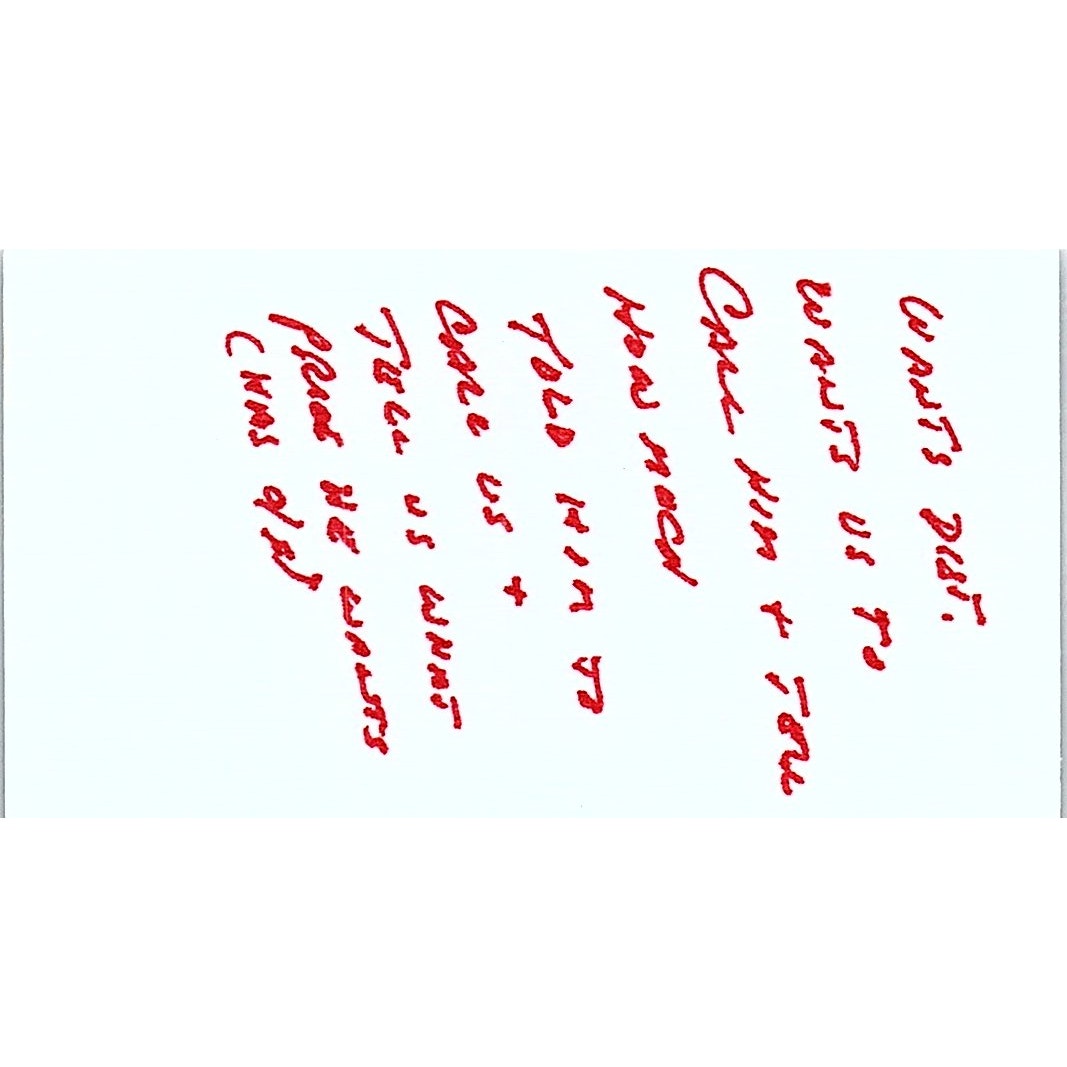 WANTS DIST.
WANTS US TO
CALL HIM & TELL
HOW MUCH
TOLD HIM TO
CALL US +
TELL US WHAT
PRICE HE WANTS